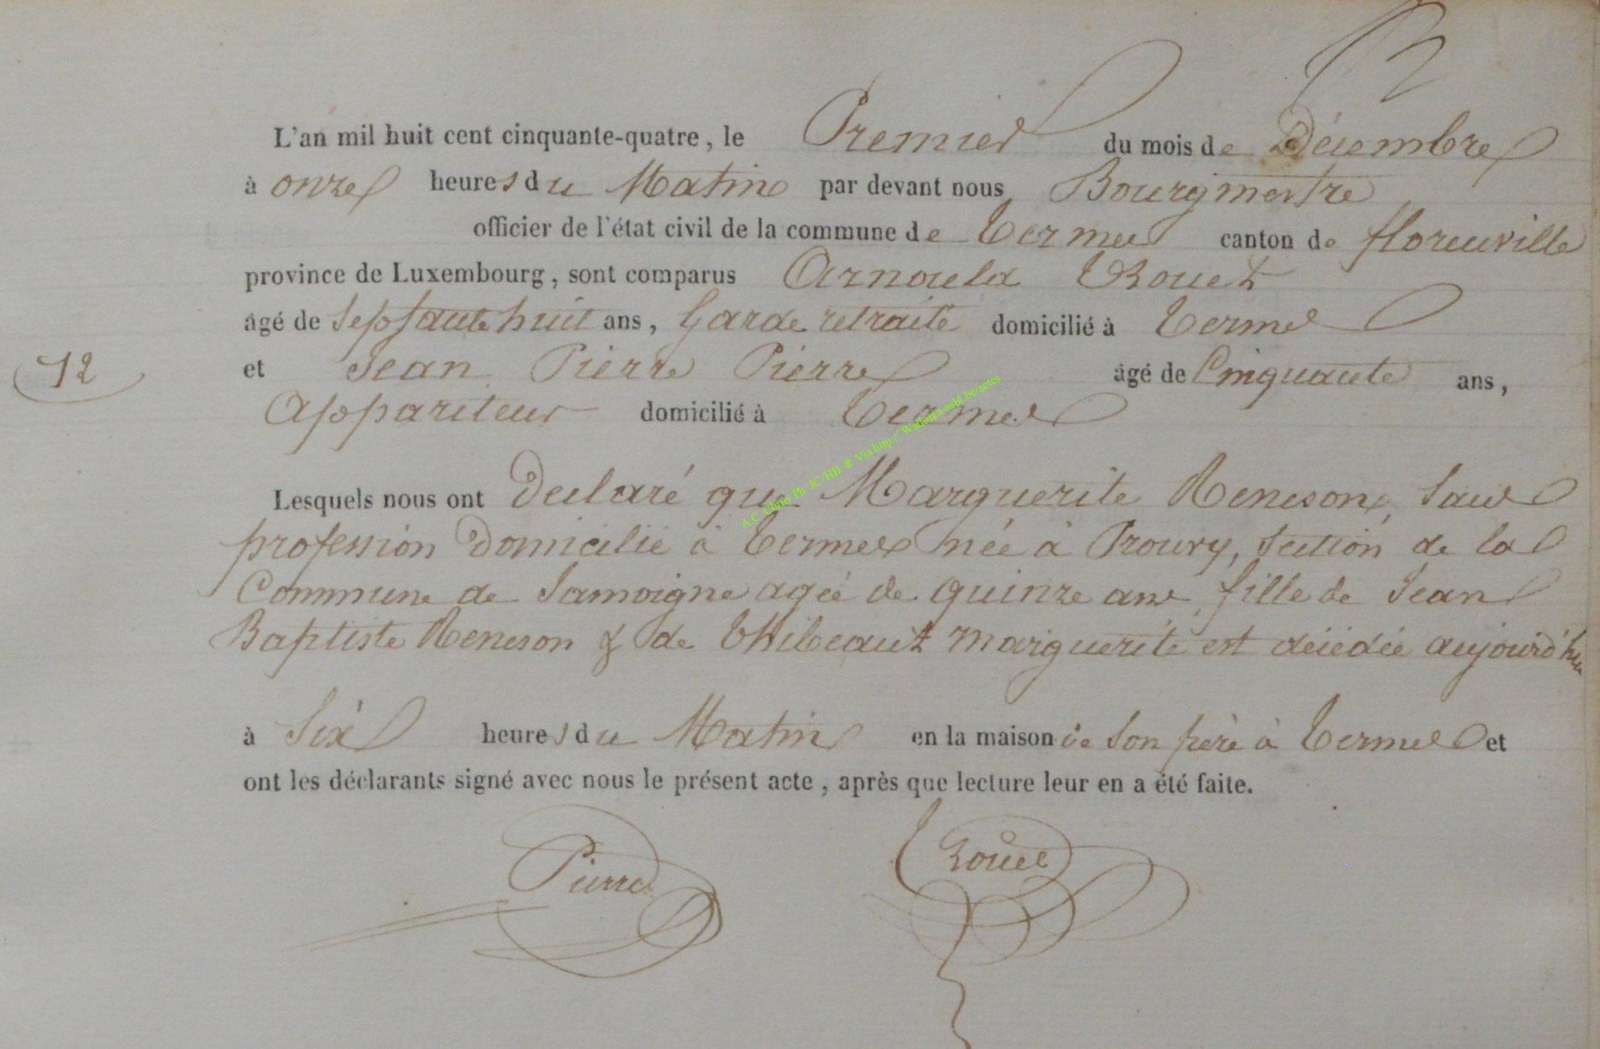 L'an mil huit cent cinquante-quatre, le Premier du mois de Décembre
à onze heures du Matin par devant nous Bourgmestre
officier de l'état civil de la commune de Termes canton de florenville
province de Luxembourg, sont comparus Arnould Rouet
âgé de Septante huit ans, Garde retraité domicilié à Termes
12
et Jean Pierre Pierre âgé de Cinquante ans,
Appariteur domicilié à Termes
Lesquels nous ont Declaré que Marguerite Reneson, Sans
profession Domicilié à Termes née à Prouvy, Section de la
Commune de Jamoigne agée de quinze ans fille de Jean
Baptiste Reneson & de Thibeaut Marguerite est décédée aujourd'hui
à Six heures du Matin en la maison de Son père à Termes et
ont les déclarants signé avec nous le présent acte, après que lecture leur en a été faite.
Pierre Rouet